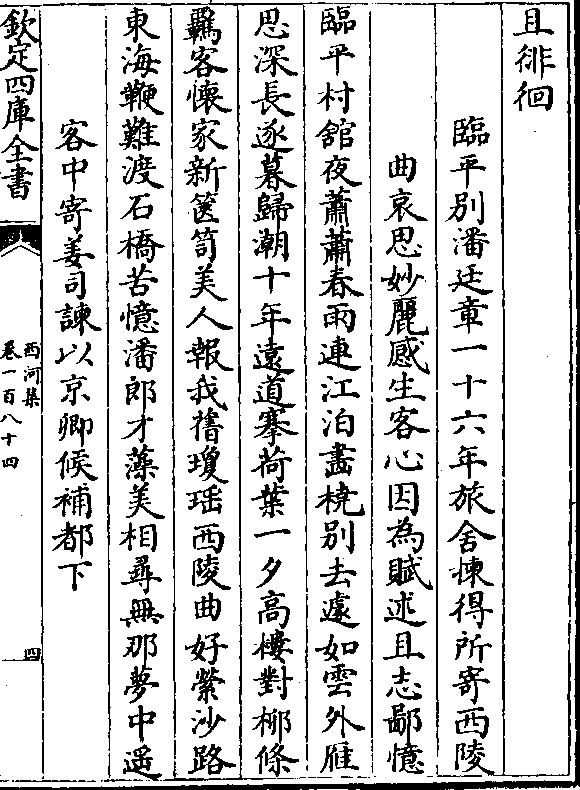 且徘徊
臨平別潘廷章一十六年旅舍揀得所寄西陵
曲哀思妙麗感生客心因為賦述且志鄙憶
臨平村舘夜蕭蕭春雨連江泊畵橈別去遽如雲外雁
思深長逐暮歸潮十年遠道搴荷葉一夕高樓對栁條
羈客懷家新篋笥美人報我舊瓊瑶西陵曲好縈沙路
東海鞭難渡石橋苦憶潘郎才藻美相尋無那夢中遥
客中寄姜司諫以京卿候補都下
欽定四庫全書
西河集
卷一百八十四
四